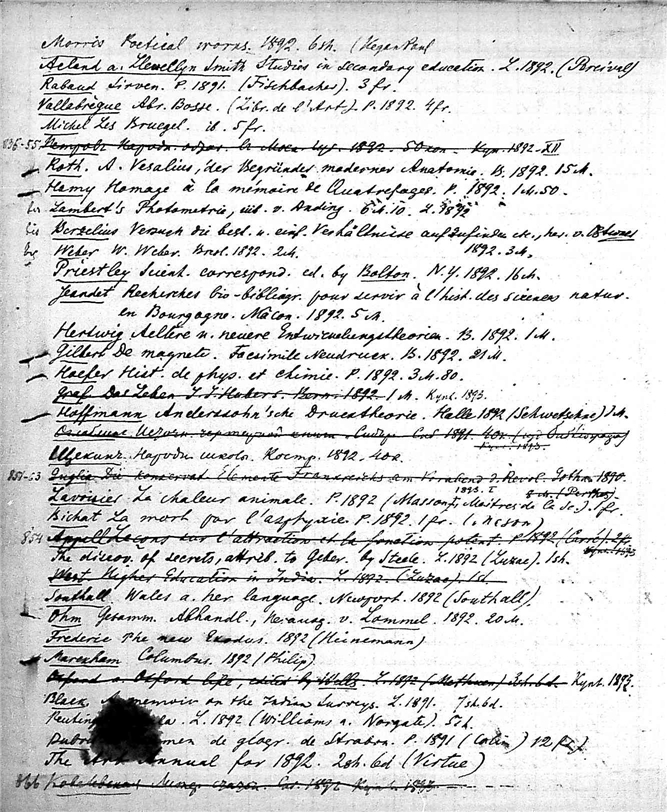 Morris Poetical works. 1892. 6sh. (Kegan Paul
Acland a. Llewellyn Smith Studies in secondary education. L. 1892. (Percival)
Rabaud Sirven. P. 1891. (Fischbacher). 3 fr.
Vallabrègue Abr. Bosse. (Libr. de l'Art). P. 1892. 4 fr.
Michel Les Bruegel. ib. 5 fr.
836-55 1892. 50 коп. Куп. 1892-XII
Roth. A. Vesalius, der Begründer moderner Anatomie. B. 1892. 15 M.
Hamy Homage à la mémoire de Quatrefages. P. 1892. 1 M. 50.
Lambert's Photometrie, üb. v. Anding. 6 M. 10. L. 1892
Berzelius Versuch die best. u. einf. Verhältnisse aufzufinden etc., her. v. Ostwald
Weber W. Weber. Bresl. 1892. 2 M. 1892. 3 M.
Priestley Scient. correspond. ed. by Bolton. N.Y. 1892. 16 M.
Jeandet Recherches bio-bibliogr. pour servir à l'hist. des sciences natur.
en Bourgogne. Mâcon. 1892. 5 M.
Hertwig Aeltere u. neuere Entwickelungstheorien. B. 1892. 1 M.
Gilbert De magnete. Facsimile Neudruck. B. 1892. 21 M.
Hoefer Hist. de phys. et chimie. P. 1892. 3 M. 80.
Graf Das Leben Bern. 1892. 1 M. Куп. 1893.
Hoffmann Anderssohn'sche Drucktheorie. Halle 1892 (Schwetschke) 1 M.
1891. 40 к.
Шекинг. Народн. школы. Костр. 1892. 40 к.
851-53 Die Elemente Frankreichs am Vorabend d. Revol. Gotha 1890.
1893. I 8 M. (Perthes)
Lavoisier La chaleur animale. P. 1892 (Masson, Maitres de la Sc.). 1 fr.
Bichat La mort par l'asphyxie P. 1892. 1 fr. (Masson)
854 Appell Leçons sur l'attraction et la fonction potent. P. 1892 (Carré) 2 fr.
Куп. 1893
The discov. of secrets, attrib. to Geber. by Steele. L. 1892 (Luzac). 1sh.
West Higher Education in India. L. 1892. (Luzac). 1sh.
Southall Wales a. her language. Newport. 1892 (Southall).
Ohm Gesamm. Abhandl., herausg. v. Lommel. 1892. 20 M.
Frederic The new Exodus. 1892 (Heinemann)
Marcxham Columbus. 1892 (Philip)
Oxford a. Oxford life, edited by Wells. L. 1892 (Methuen) 3sh. 6d. Куп. 1893.
Black, A memoir on the Indian Surveys. L. 1891. 7sh 6d.
L. 1892 (Williams a. Norgate). 5sh.
de géogr. de Strabon. P. 1891 (Colin) 12 fr.
The Art Annual for 1892. 2sh. 6d (Virtue)
866 1892 Куп. 1893